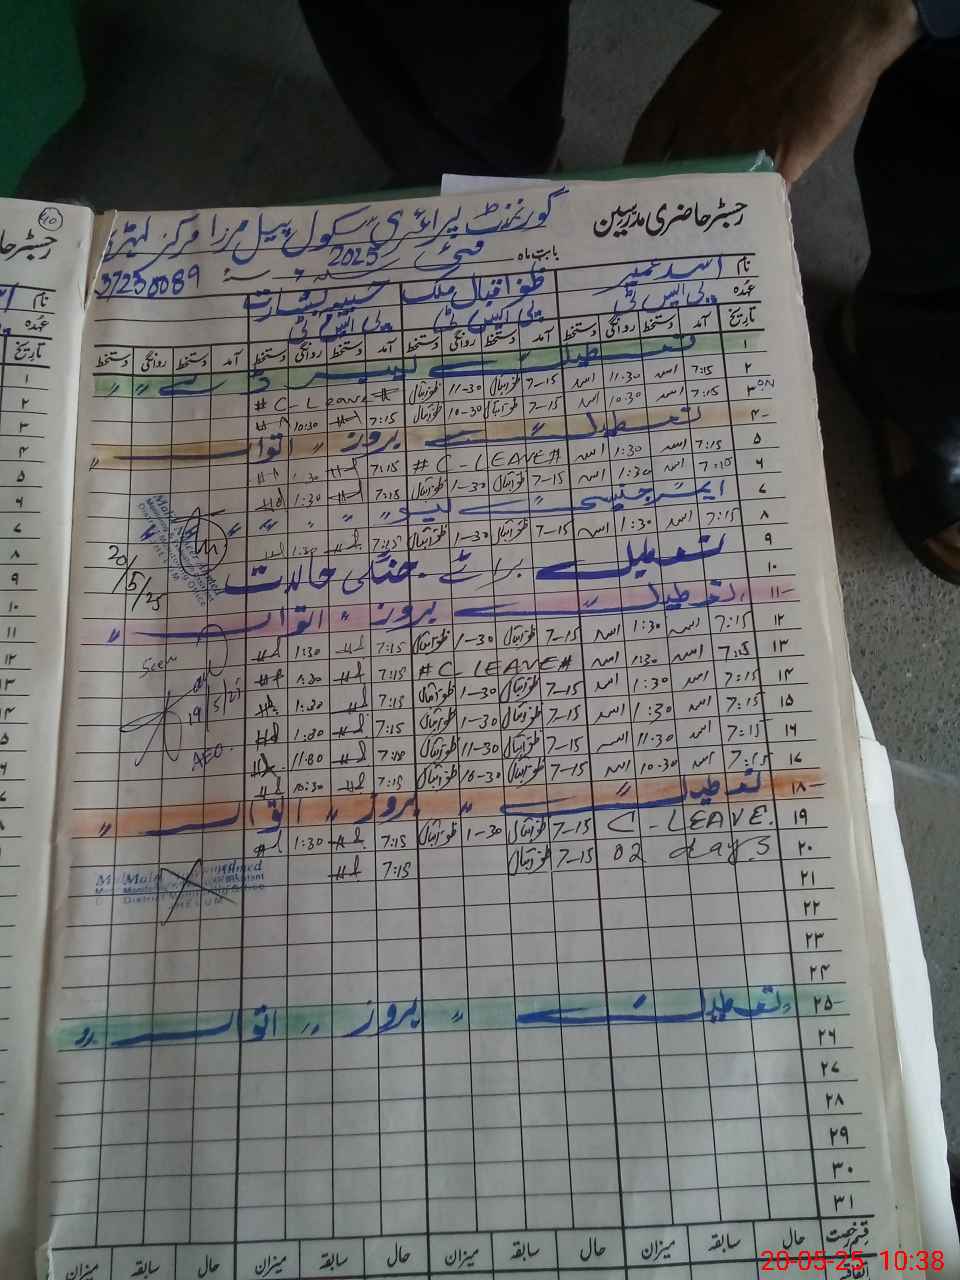 رجسٹر حاضری مدرسین
گورنمنٹ پرائمری سکول پیل مرزا مرکز لہڑی
بابت ماہ مئی 2025
37250089
نام اسد عمیر ظفر اقبال ملک حسیب بشارت
عہدہ پی ایس ٹی پی ایس ٹی پی ایس ٹی
تاریخ آمد دستخط روانگی دستخط آمد دستخط روانگی دستخط آمد دستخط روانگی دستخط آمد دستخط روانگی دستخط
۱ تعطیل لیبر ڈے
۲ 7:15 اسد 11:30 اسد 7-15 ظفر اقبال 11-30 ظفر اقبال # C-Leave #
۳ 7:15 اسد 10:30 اسد 7-15 ظفر اقبال 10-30 ظفر اقبال 7:15 10:30
۴ تعطیل بروز اتوار
۵ 7:15 اسد 1:30 اسد # C-LEAVE # 7:15 1:30
۶ 7:15 اسد 1:30 اسد 7-15 ظفر اقبال 1-30 ظفر اقبال 7:15 1:30
۷ ایمرجنسی لیو
۸ 7:15 اسد 1:30 اسد 7-15 ظفر اقبال 1-30 ظفر اقبال 7:15 1:30
۹ تعطیل برائے جنگی حالات
۱۰
20/5/25
۱۱ تعطیل بروز اتوار
۱۲ 7:15 اسد 1:30 اسد 7-15 ظفر اقبال 1-30 ظفر اقبال 7:15 1:30
۱۳ 7:15 اسد 1:30 اسد # C-LEAVE # 7:15 1:30
Seen
۱۴ 7:15 اسد 1:30 اسد 7-15 ظفر اقبال 1-30 ظفر اقبال 7:15 1:30
۱۵ 7:15 اسد 1:30 اسد 7-15 ظفر اقبال 1-30 ظفر اقبال 7:15 1:30
19/5/25
۱۶ 7:15 اسد 11:30 اسد 7-15 ظفر اقبال 11-30 ظفر اقبال 11:30
AEO.
7:15 اسد 10-30 اسد 7-15 ظفر اقبال 10-30 ظفر اقبال 7:15 10:30
۱۸ تعطیل بروز اتوار
۱۹ C-LEAVE. 7-15 ظفر اقبال 1-30 ظفر اقبال 7:15 1:30
۲۰ 02 days 7-15 ظفر اقبال 7:15
District Monitoring Office
JHELUM
۲۱
۲۲
۲۳
۲۴
۲۵ تعطیل بروز اتوار
۲۶
۲۷
۲۸
۲۹
۳۰
۳۱
قسم رخصت حال سابقہ میزان حال سابقہ میزان حال سابقہ میزان
20-05-25 10:38